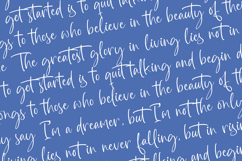 get started is to quit talking and begin
ngs to those who believe in the beauty of the
e. The greatest glory in living lies not in
to get started is to quit talking and begin d
ongs to those who believe in the beauty of t
ay I'm a dreamer, but I'm not the only
living lies not in never falling, but in risin
is to quit talking and begin